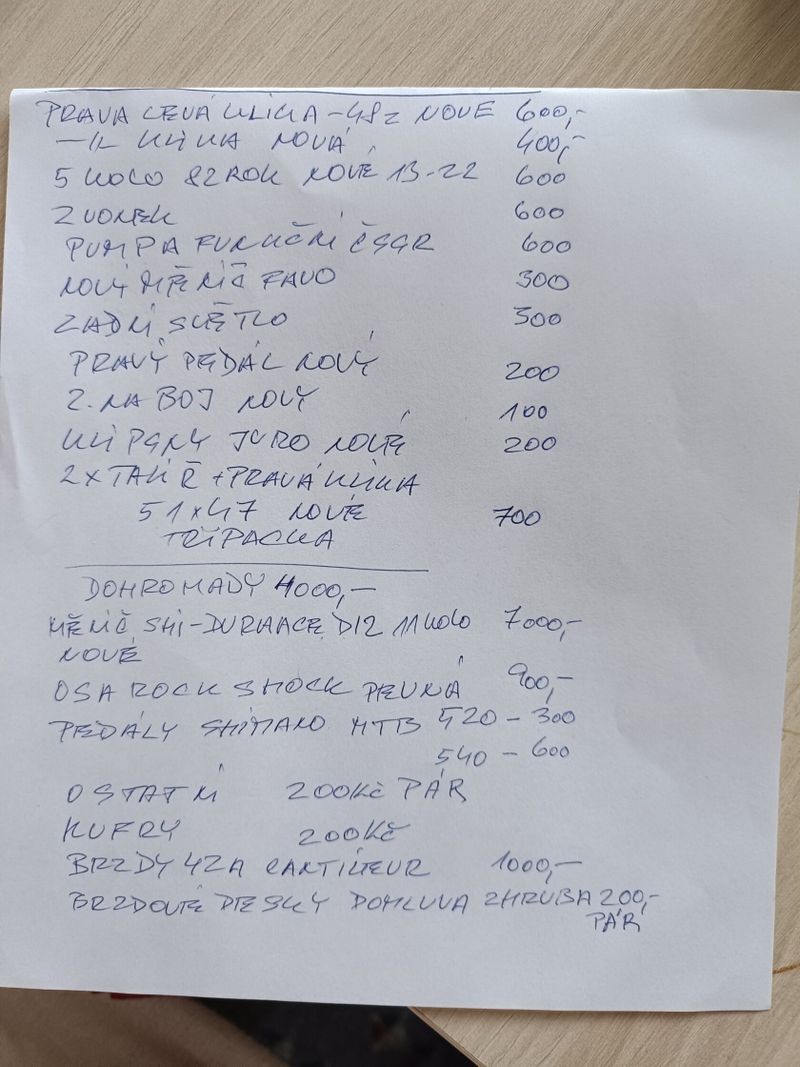 PRAVA LEVÁ KLIKA - 48z NOVÉ 600,-
-11- KLIKA NOVÁ 400,-
5 KOLO 82 ROK NOVÉ 13-22 600
ZVONEK 600
PUMPA FUNKČNÍ ČSSR 600
NOVÝ MĚNIČ FAVO 300
ZADNÍ SVĚTLO 300
PRAVÝ PEDÁL NOVÝ 200
Z. NABOJ NOVÝ 100
KLIPSNY JURO NOVÉ 200
2x TALÍŘ + PRAVÁ KLIKA
51x47 NOVÉ 700
TŘÍPACKA
DOHROMADY 4000,-
MĚNIČ SHI-DURAACE DI2 11 KOLO 7000,-
NOVÉ
OSA ROCK SHOCK PEVNÁ 900,-
PEDÁLY SHIMANO MTB 520 - 300
540 - 600
OSTATNÍ 200Kč PÁR
KUFRY 200Kč
BRZDY 4ZA CANTILEUR 1000,-
BRZDOVÉ DESKY DOMLUVA ZHRUBA 200,-
PÁR